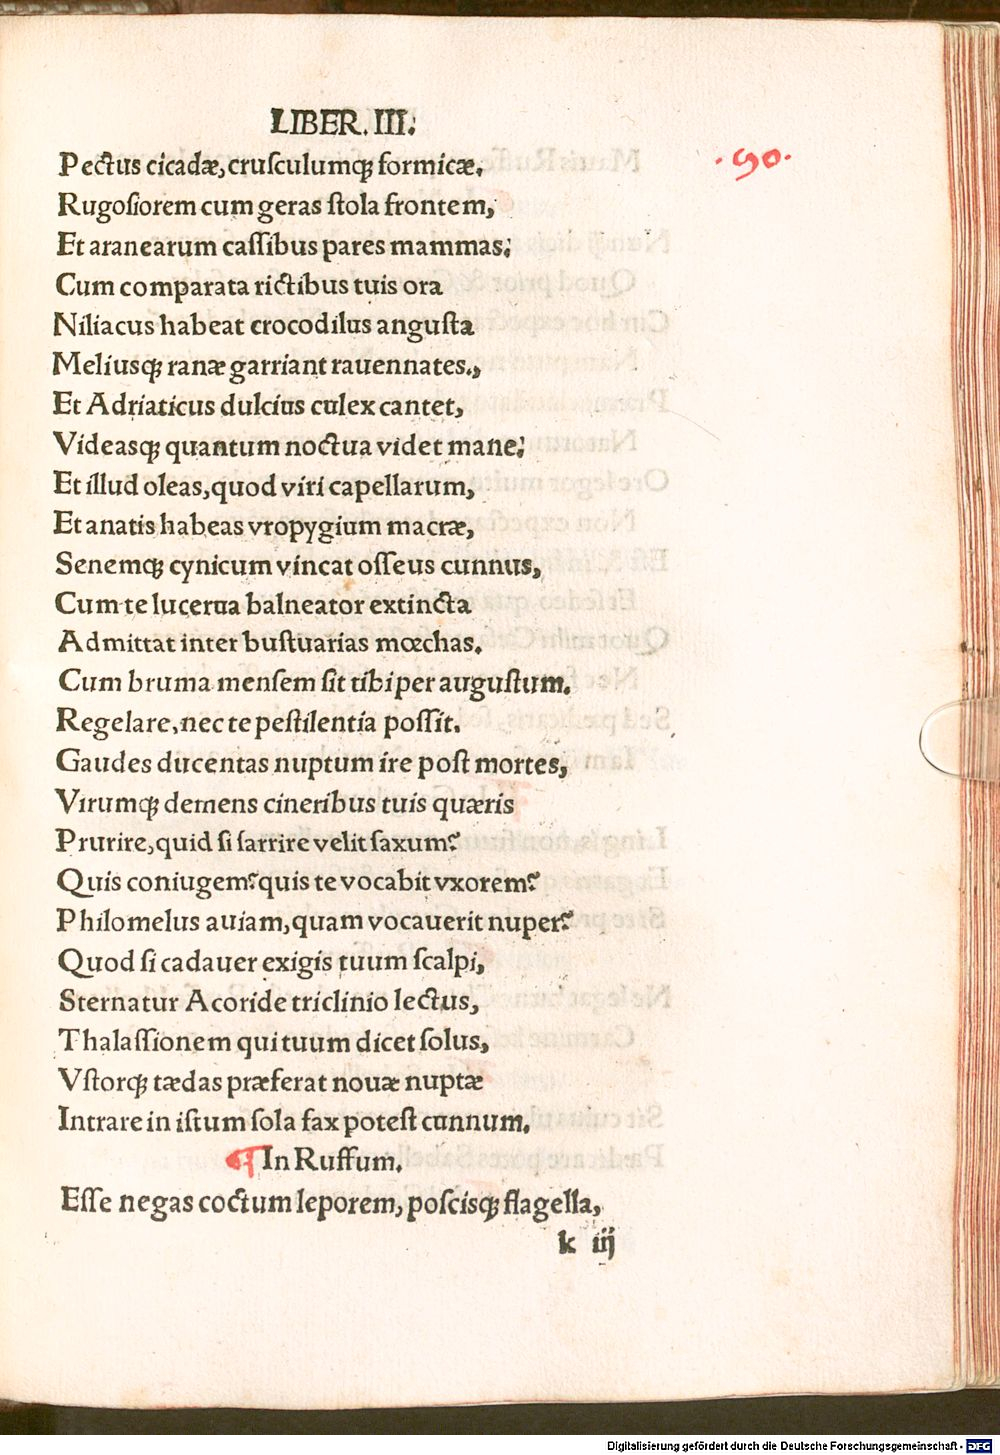 LIBER. III.
Pectus cicadæ, crusculumqꝫ formicæ.
·90.
Rugosiorem cum geras stola frontem,
Et aranearum cassibus pares mammas:
Cum comparata rictibus tuis ora
Niliacus habeat crocodilus angusta
Meliusqꝫ ranæ garriant rauennates.,
Et Adriaticus dulcius culex cantet,
Videasqꝫ quantum noctua videt mane:
Et illud oleas, quod viri capellarum,
Et anatis habeas vropygium macræ,
Senemqꝫ cynicum vincat osseus cunnus,
Cum te lucerna balneator extincta
Admittat inter bustuarias mœchas.
Cum bruma mensem sit tibi per augustum.
Regelare, nec te pestilentia possit.
Gaudes ducentas nuptum ire post mortes,
Virumqꝫ demens cineribus tuis quæris
Prurire, quid si sarrire velit saxum?
Quis coniugem? quis te vocabit vxorem?
Philomelus auiam, quam vocauerit nuper?
Quod si cadauer exigis tuum scalpi,
Sternatur Acoride triclinio lectus,
Thalassionem qui tuum dicet solus,
Vstorqꝫ tædas præferat nouæ nuptæ
Intrare in istum sola fax potest cunnum.
¶ In Ruffum.
Esse negas coctum leporem, poscisqꝫ flagella,
k iij
Digitalisierung gefördert durch die Deutsche Forschungsgemeinschaft - DFG